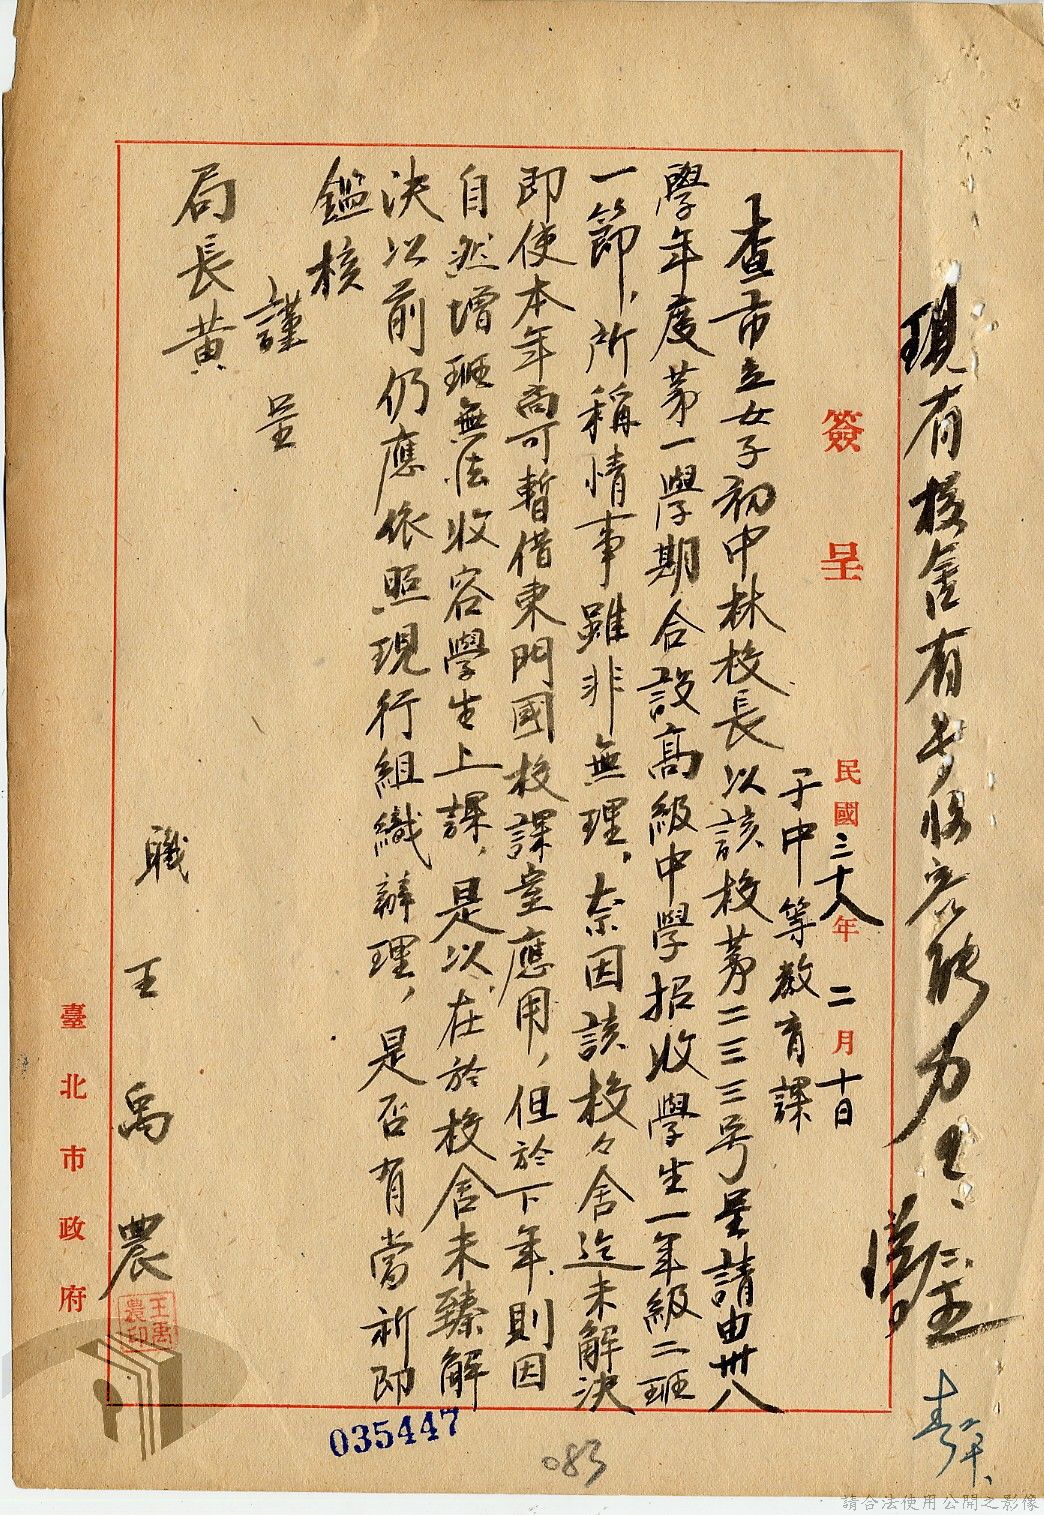 現有校舍有
簽呈
民國三十八年二月十日
于中等教育課
查市立女子初中林校長以該校第二三三号呈請由卅八
學年度第一學期合設高級中學招收學生一年級二班
一節，所稱情事雖非無理，奈因該校々舍迄未解決
即使本年尚可暫借東門國校課室應用，但於下年則因
自然增班無法收容學生上課，是以在於校舍未臻解
決以前仍應依照現行組織辦理，是否有當祈即
鑑核
謹呈
局長黃
職王禹農
王禹農印
臺北市政府
035447
083
請合法使用公開之影像